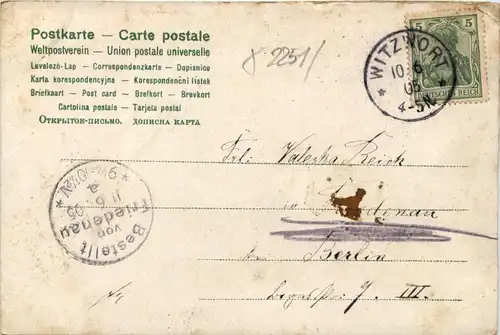 Postkarte — Carte postale
Weltpostverein — Union postale universelle
Levelező-Lap — Correspondenzkarte — Dopisnice
Karta korespondencyjna — Korespondenční lístek
Briefkaart — Post card — Brefkort — Brevkort
Cartolina postale — Tarjeta postal
Открытое-письмо. дописна карта
2251/
5 5
WITZWORT
10 6
05
4-5N
DEUTSCHES REICH
Frl. Valeska Reich
in Friedenau
Berlin
III.
Bestellt
von
Friedenau
11 6
05